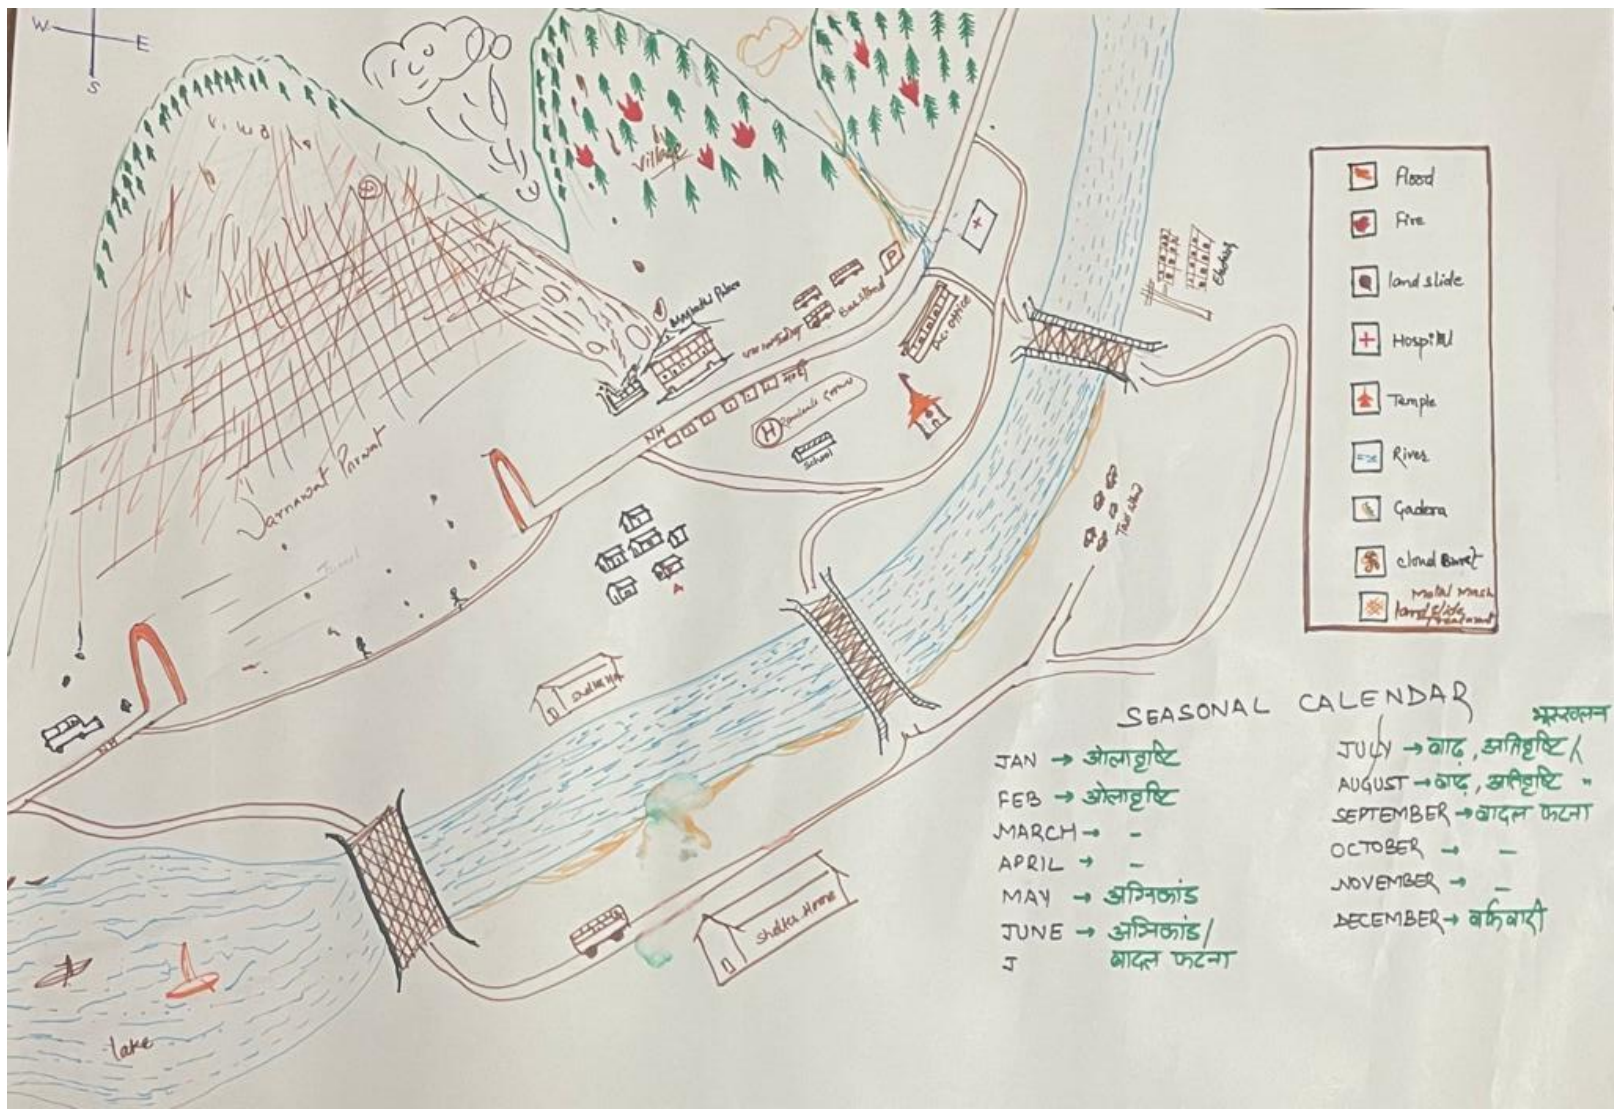 W
E
S
village
Varnawat Parwat
Tunnel
Bus stand
P
NH
H
School
NH
Shelter Home
lake
Flood
Fire
land slide
Hospital
Temple
River
Gadera
cloud Burst
Metal Mesh
land slide
treatment
SEASONAL CALENDAR
JAN → ओलावृष्टि
FEB → ओलावृष्टि
MARCH → -
APRIL → -
MAY → अग्निकांड
JUNE → अग्निकांड/
J बादल फटना
भूस्खलन
JULY → बाढ़, अतिवृष्टि /
AUGUST → बाढ़, अतिवृष्टि "
SEPTEMBER → बादल फटना
OCTOBER → -
NOVEMBER → -
DECEMBER → बर्फबारी